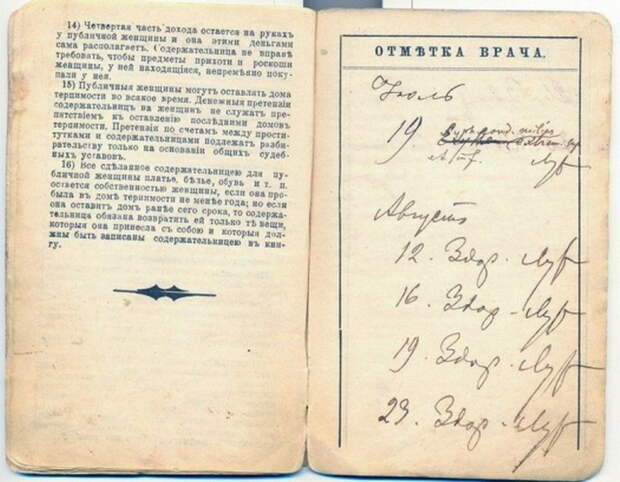 14) Четвертая часть дохода остается на рукахъ
у публичной женщины и она этими деньгами
сама располагаетъ. Содержательница не вправѣ
требовать, чтобы предметы прихоти и роскоши
женщины, у ней находящiяся, непремѣнно поку-
пали у нея.
15) Публичныя женщины могутъ оставлять дома
терпимости во всякое время. Денежныя претензiи
содержательницъ на женщинъ не служатъ пре-
пятствiемъ къ оставленiю послѣдними домовъ
терпимости. Претензiи по счетамъ между прости-
тутками и содержательницами подлежатъ разби-
рательству только на основанiи общихъ судеб-
ныхъ уставовъ.
16) Все сдѣланное содержательницею для пу-
бличной женщины платье, бѣлье, обувь и т. п.
остается собственностью женщины, если она про-
была въ домѣ терпимости не менѣе года; но если
она оставитъ домъ ранѣе сего срока, то содержа-
тельница обязана возвратить ей только тѣ вещи,
которыя она принесла съ собою и которыя дол-
жны быть записаны содержательницею въ кни-
гу.
ОТМѢТКА ВРАЧА.
Iюль
19
Августъ
12. Здор.
16. Здор.
19. Здор.
23. Здор.